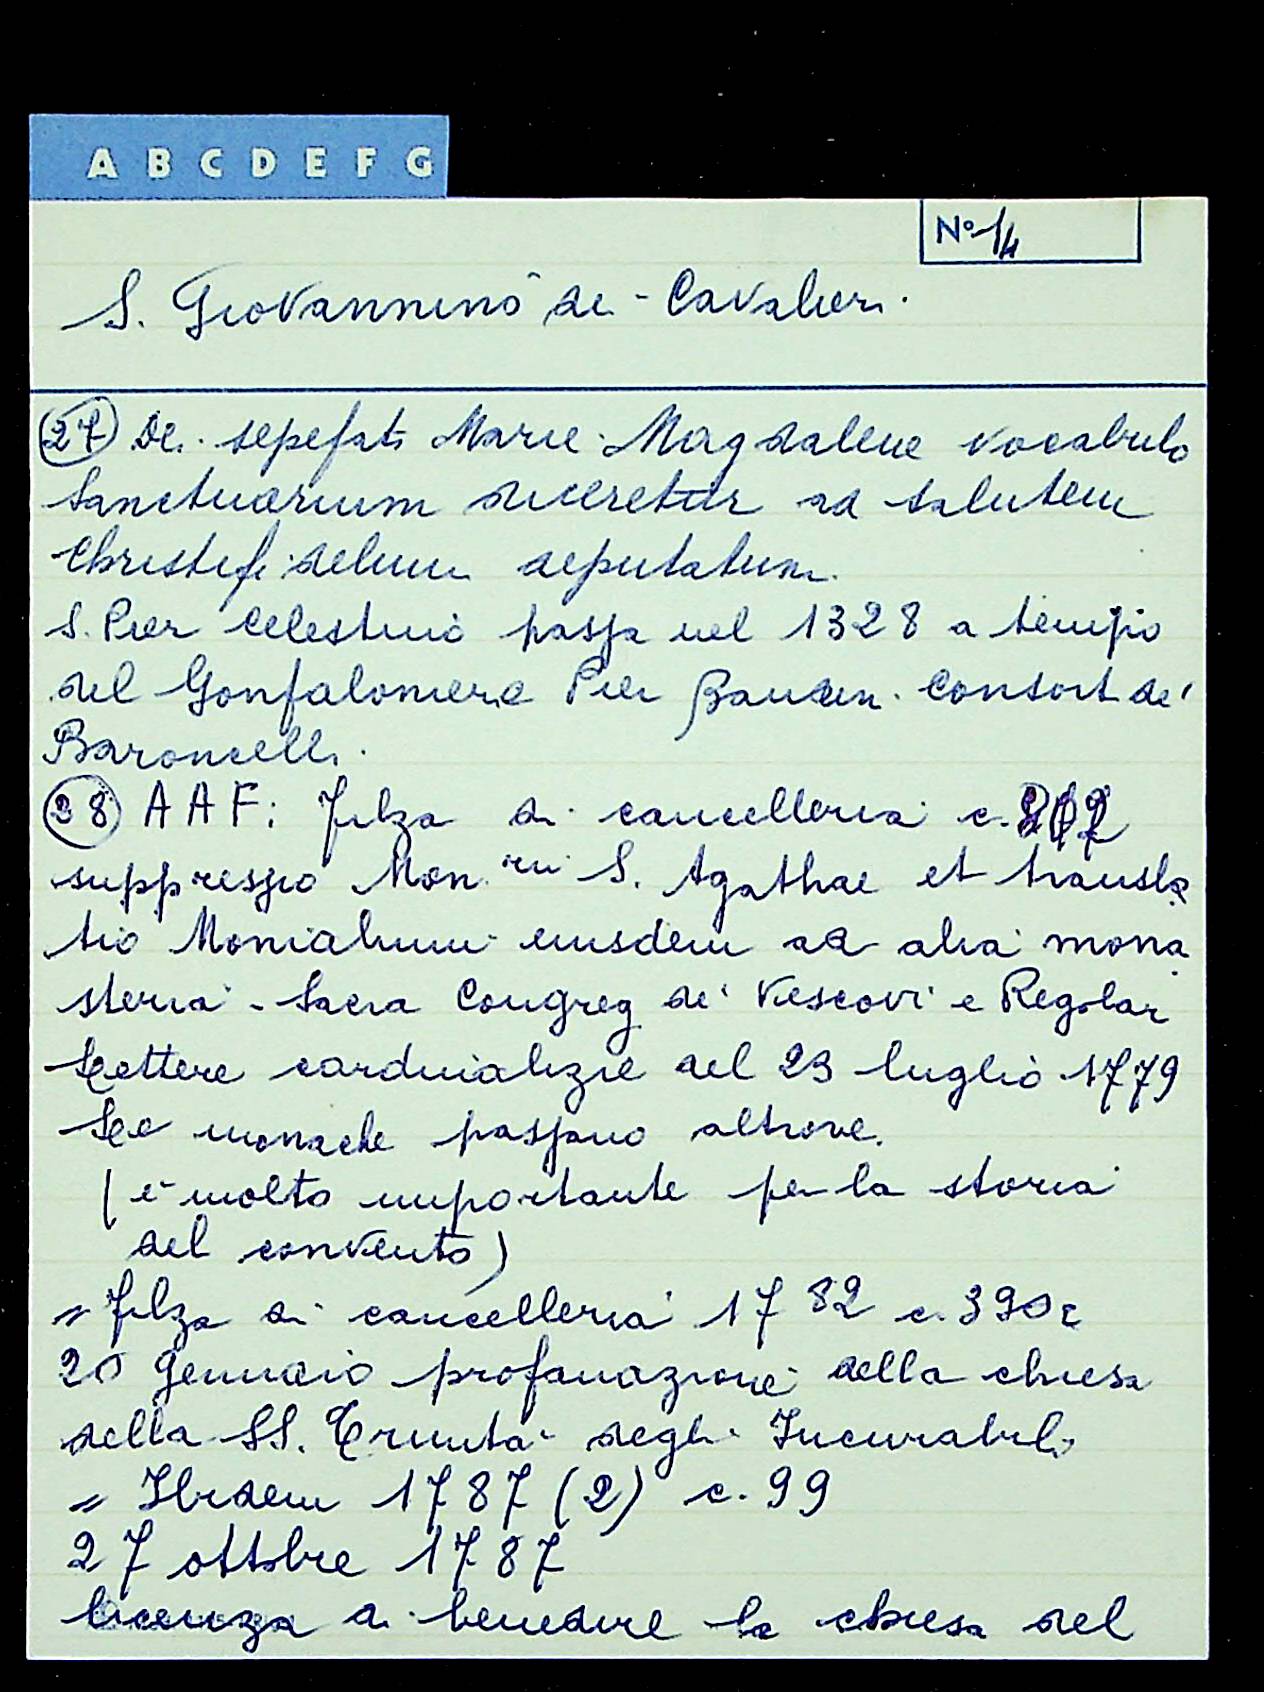 A B C D E F G
N° 14
S. Giovannino de' Cavalieri.
(27) De. sepefati Marie Magdalene vocabulo
Sanctuarium diceretur ad salutem
Christifidelium deputatum.
S. Pier Celestino passa nel 1328 a tempio
del Gonfaloniere Pier Bandin. Consort de'
Baroncelli.
(28) AAF: Filza di cancelleria c.
suppressio Mon.rii S. Agathae et transla
tio Monialium eiusdem ad alia mona
steria - Sacra Congreg de' Vescovi e Regolar
Lettere cardinalizie del 23 luglio 1779
Le monache passano altrove.
(è molto importante per la storia
del convento)
= Filza di cancelleria 1782 c. 390r
20 Gennaio profanazione della chiesa
della SS. Trinità degli Incurabili
= Ibidem 1787 (2) c. 99
27 ottobre 1787
licenza di benedire la chiesa del